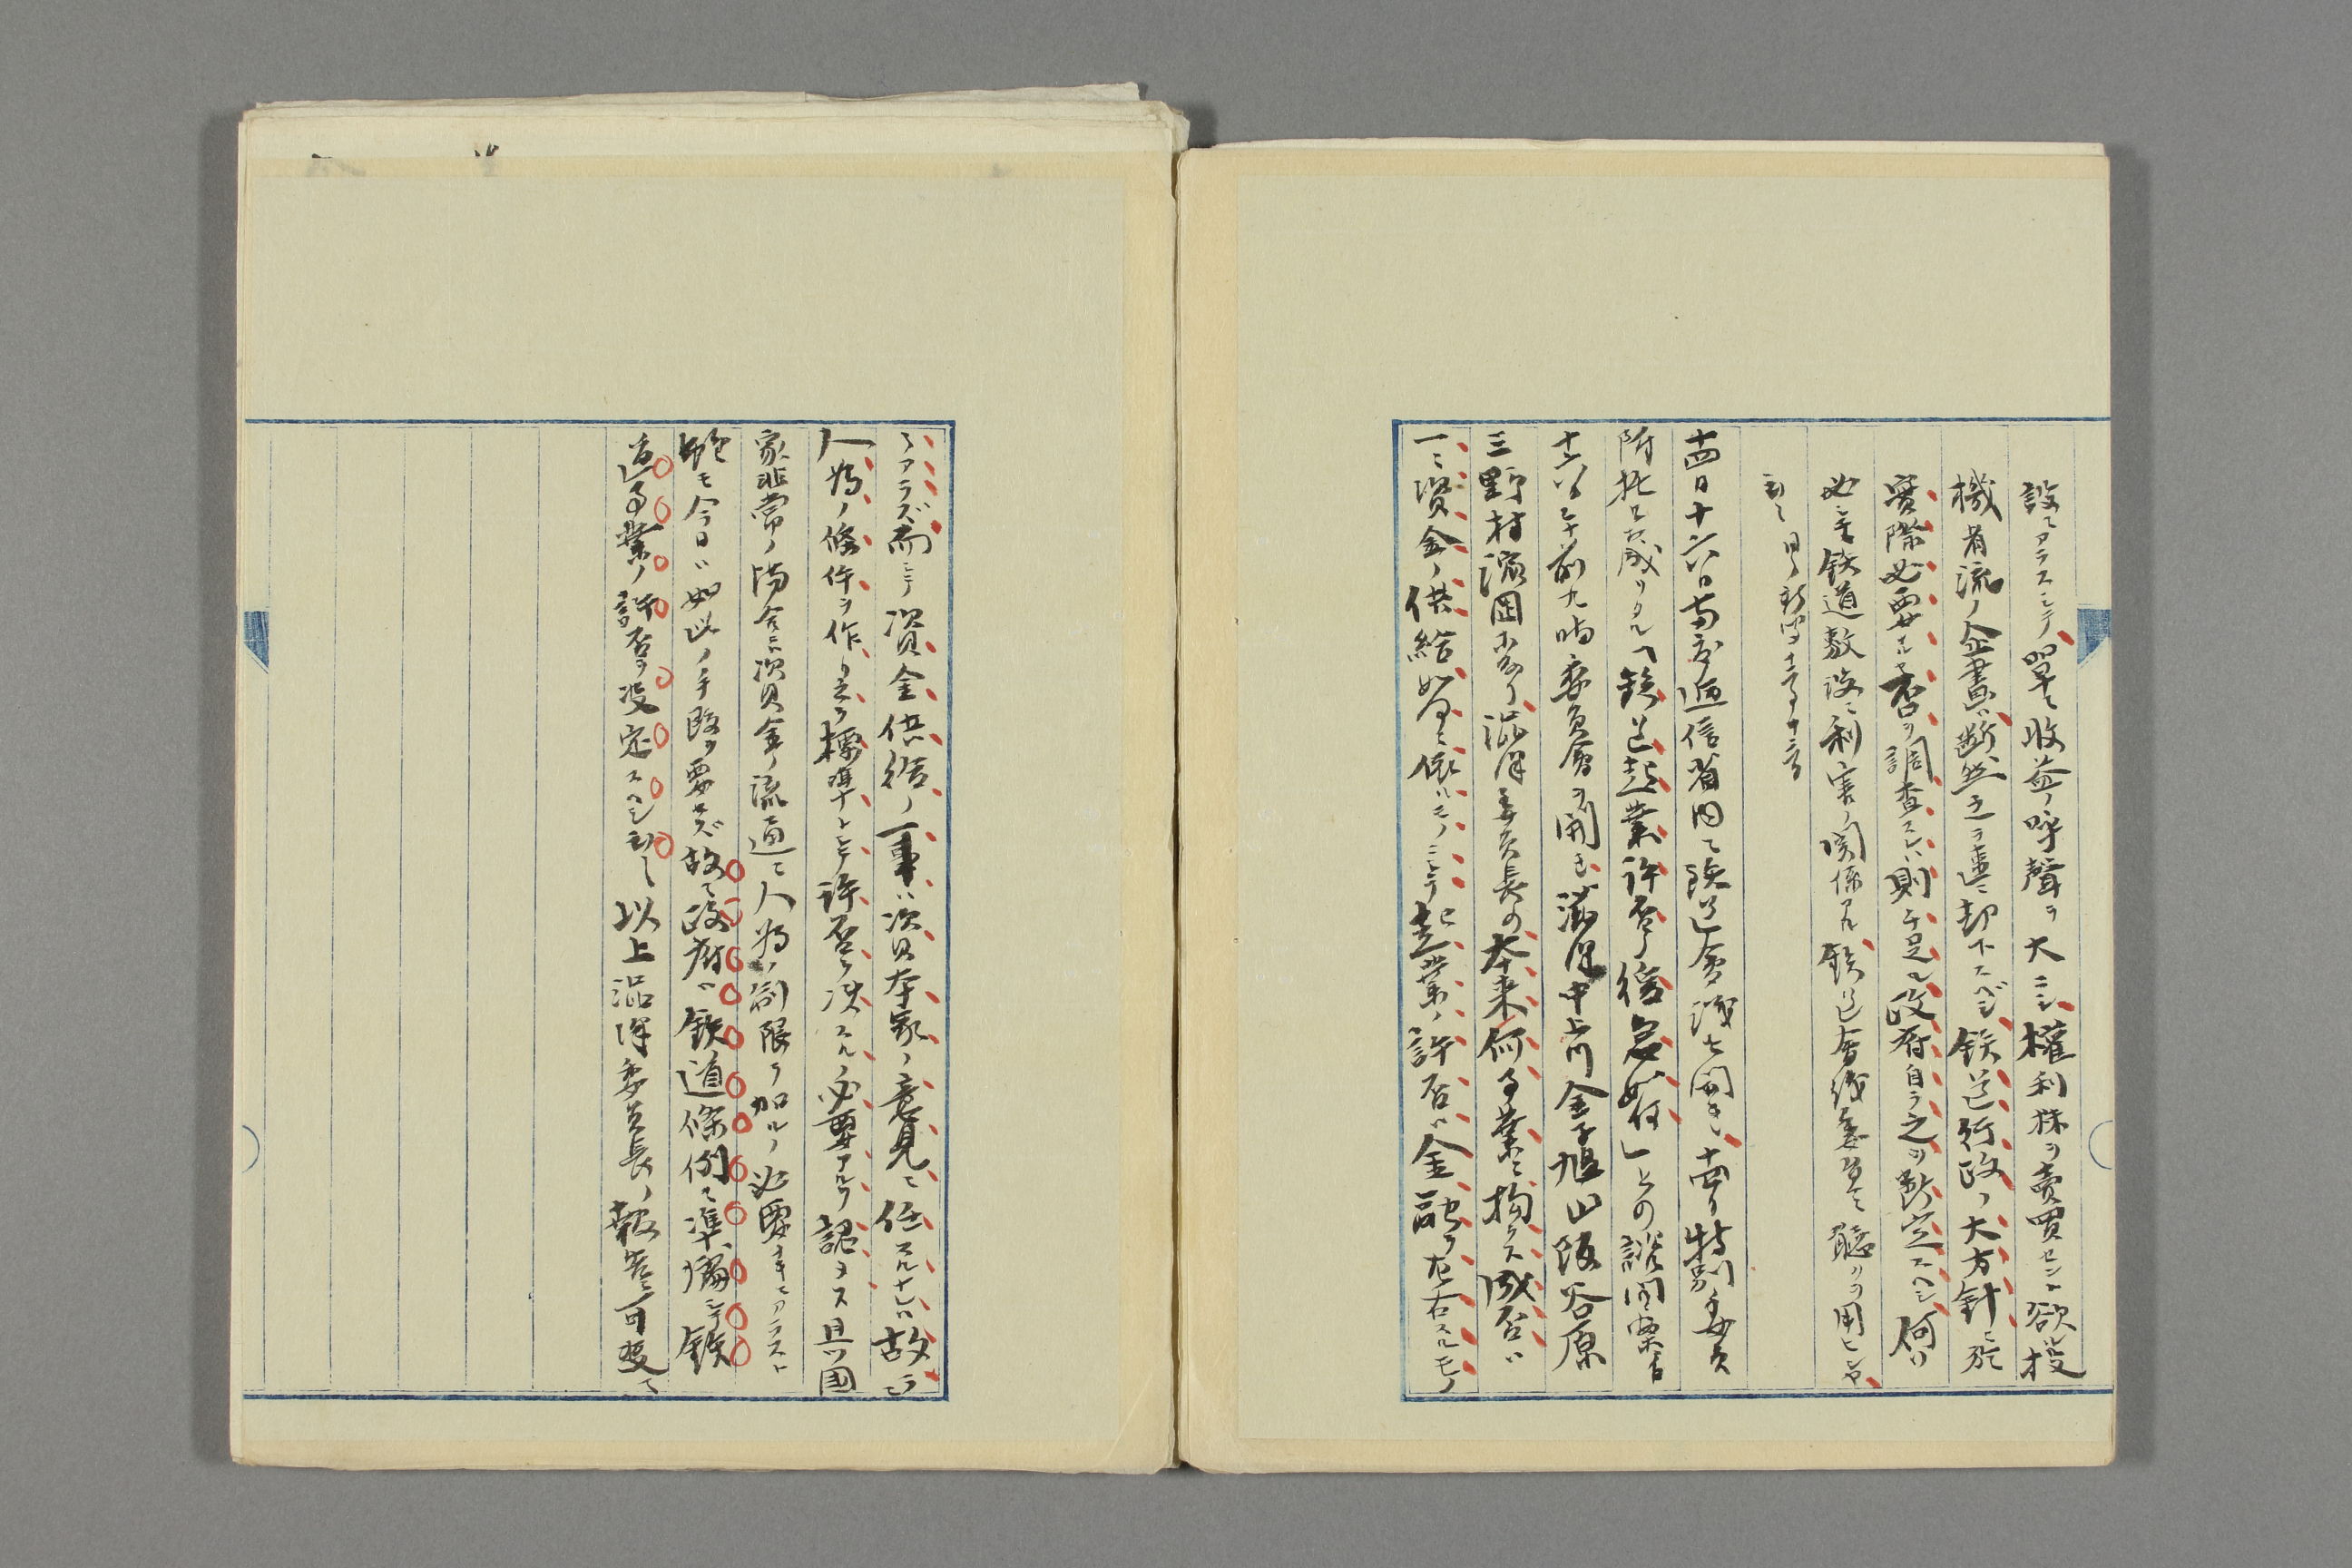 設ニアラズシテ單ニ收益ノ呼聲ヲ大ニシ權利株ヲ賣買セント欲ル投
機者流ノ企畫ハ斷然之ヲ速ニ却下スベシ鉄道行政ノ大方針ニ於
實際必要ナルヤ否ヲ調査スレハ則チ足ル政府自ラ之ヲ斷定スヘシ何ソ
必シモ鉄道敷設ニ利害ノ関係アル鉄道會議委員ニ聽クヲ用ヒンヤ
十四日十六日両度逓信省内ニ鉄道會議を開き十四日特別委員
附托と成りタル「鉄道起業許否ノ緩急如何」との諮問案者
十六日午前九時委員會ヲ開き澁澤中上川金子堀山阪谷原
三野村濱岡 澁澤委員長の本来何事業ニ拘ラス成否ハ
一ニ資金ノ供給如何ニ依ルモノニシテ起業ノ許否ハ金融ヲ左右スルモノ
ニアラズ而シテ資金供給ノ一事ハ資本家ノ意見ニ任スルナレハ故ラニ
人為ノ條件ヲ作リ之ヲ標準トシテ許否ヲ决スルノ必要アルヲ認メス且ツ國
家非常ノ場合ニ資金ノ流通ニ人為ノ制限ヲ加ルノ必要ナキニアラスト
雖モ今日ハ如此ノ手段ヲ要セズ故ニ政府ハ鉄道條例ニ準據シテ鉄
道事業ノ許否ヲ决定スヘシ 以上澁澤委員長ノ報告可决ニ